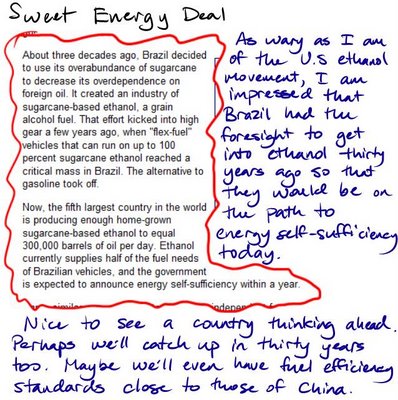 Sweet Energy Deal
About three decades ago, Brazil decided
to use its overabundance of sugarcane
to decrease its overdependence on
foreign oil. It created an industry of
sugarcane-based ethanol, a grain
alcohol fuel. That effort kicked into high
gear a few years ago, when "flex-fuel"
vehicles that can run on up to 100
percent sugarcane ethanol reached a
critical mass in Brazil. The alternative to
gasoline took off.
Now, the fifth largest country in the world
is producing enough home-grown
sugarcane-based ethanol to equal
300,000 barrels of oil per day. Ethanol
currently supplies half of the fuel needs
of Brazilian vehicles, and the government
is expected to announce energy self-sufficiency within a year.
As wary as I am
of the U.S ethanol
movement, I am
impressed that
Brazil had the
foresight to get
into ethanol thirty
years ago so that
they would be on
the path to
energy self-sufficiency
today.
Nice to see a country thinking ahead.
Perhaps we'll catch up in thirty years
too. Maybe we'll even have fuel efficiency
standards close to those of China.